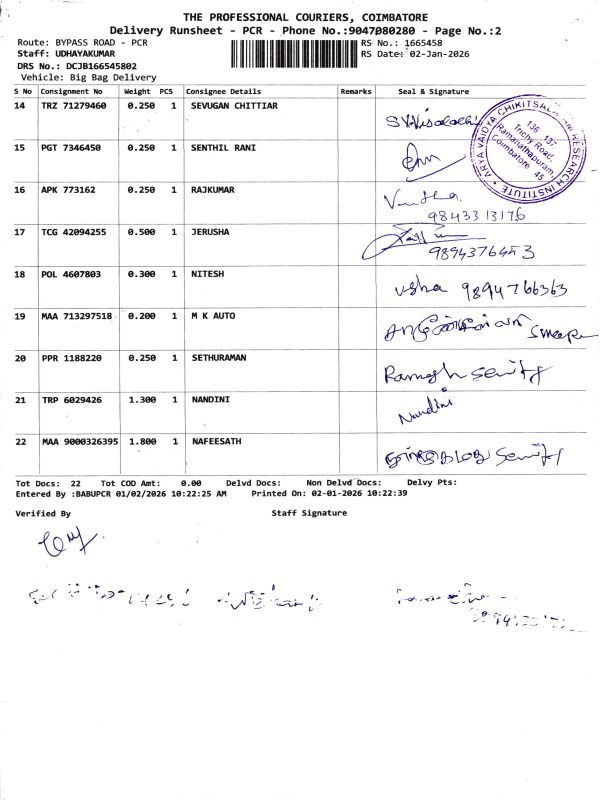 THE PROFESSIONAL COURIERS, COIMBATORE
Delivery Runsheet - PCR - Phone No.:9047080280 - Page No.:2
Route: BYPASS ROAD - PCR
Staff: UDHAYAKUMAR
DRS No.: DCJB166545802
Vehicle: Big Bag Delivery
RS No.: 1665458
RS Date: 02-Jan-2026
S No Consignment No Weight PCS Consignee Details Remarks Seal & Signature
14 TRZ 71279460 0.250 1 SEVUGAN CHITTIAR
ARYA VAIDYA CHIKITSALAYAM RESEARCH INSTITUTE
136 137
Trichy Road,
Ramanathapuram,
Coimbatore 45
15 PGT 7346450 0.250 1 SENTHIL RANI
16 APK 773162 0.250 1 RAJKUMAR
9843313176
17 TCG 42094255 0.500 1 JERUSHA
9894376453
18 POL 4607803 0.300 1 NITESH usha 9894766363
19 MAA 713297518 0.200 1 M K AUTO
20 PPR 1188220 0.250 1 SETHURAMAN Ramesh
21 TRP 6029426 1.300 1 NANDINI Nandini
22 MAA 9000326395 1.800 1 NAFEESATH
Tot Docs: 22 Tot COD Amt: 0.00 Delvd Docs: Non Delvd Docs: Delvy Pts:
Entered By :BABUPCR 01/02/2026 10:22:25 AM Printed On: 02-01-2026 10:22:39
Verified By Staff Signature